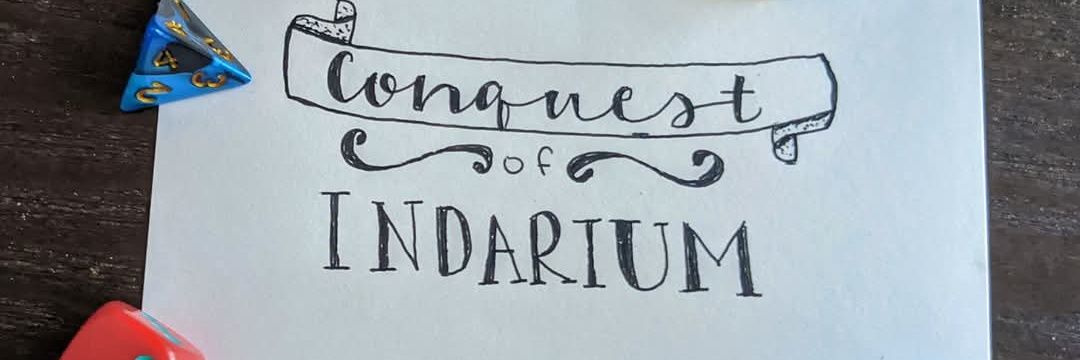 Conquest
of
INDARIUM
4
3
2